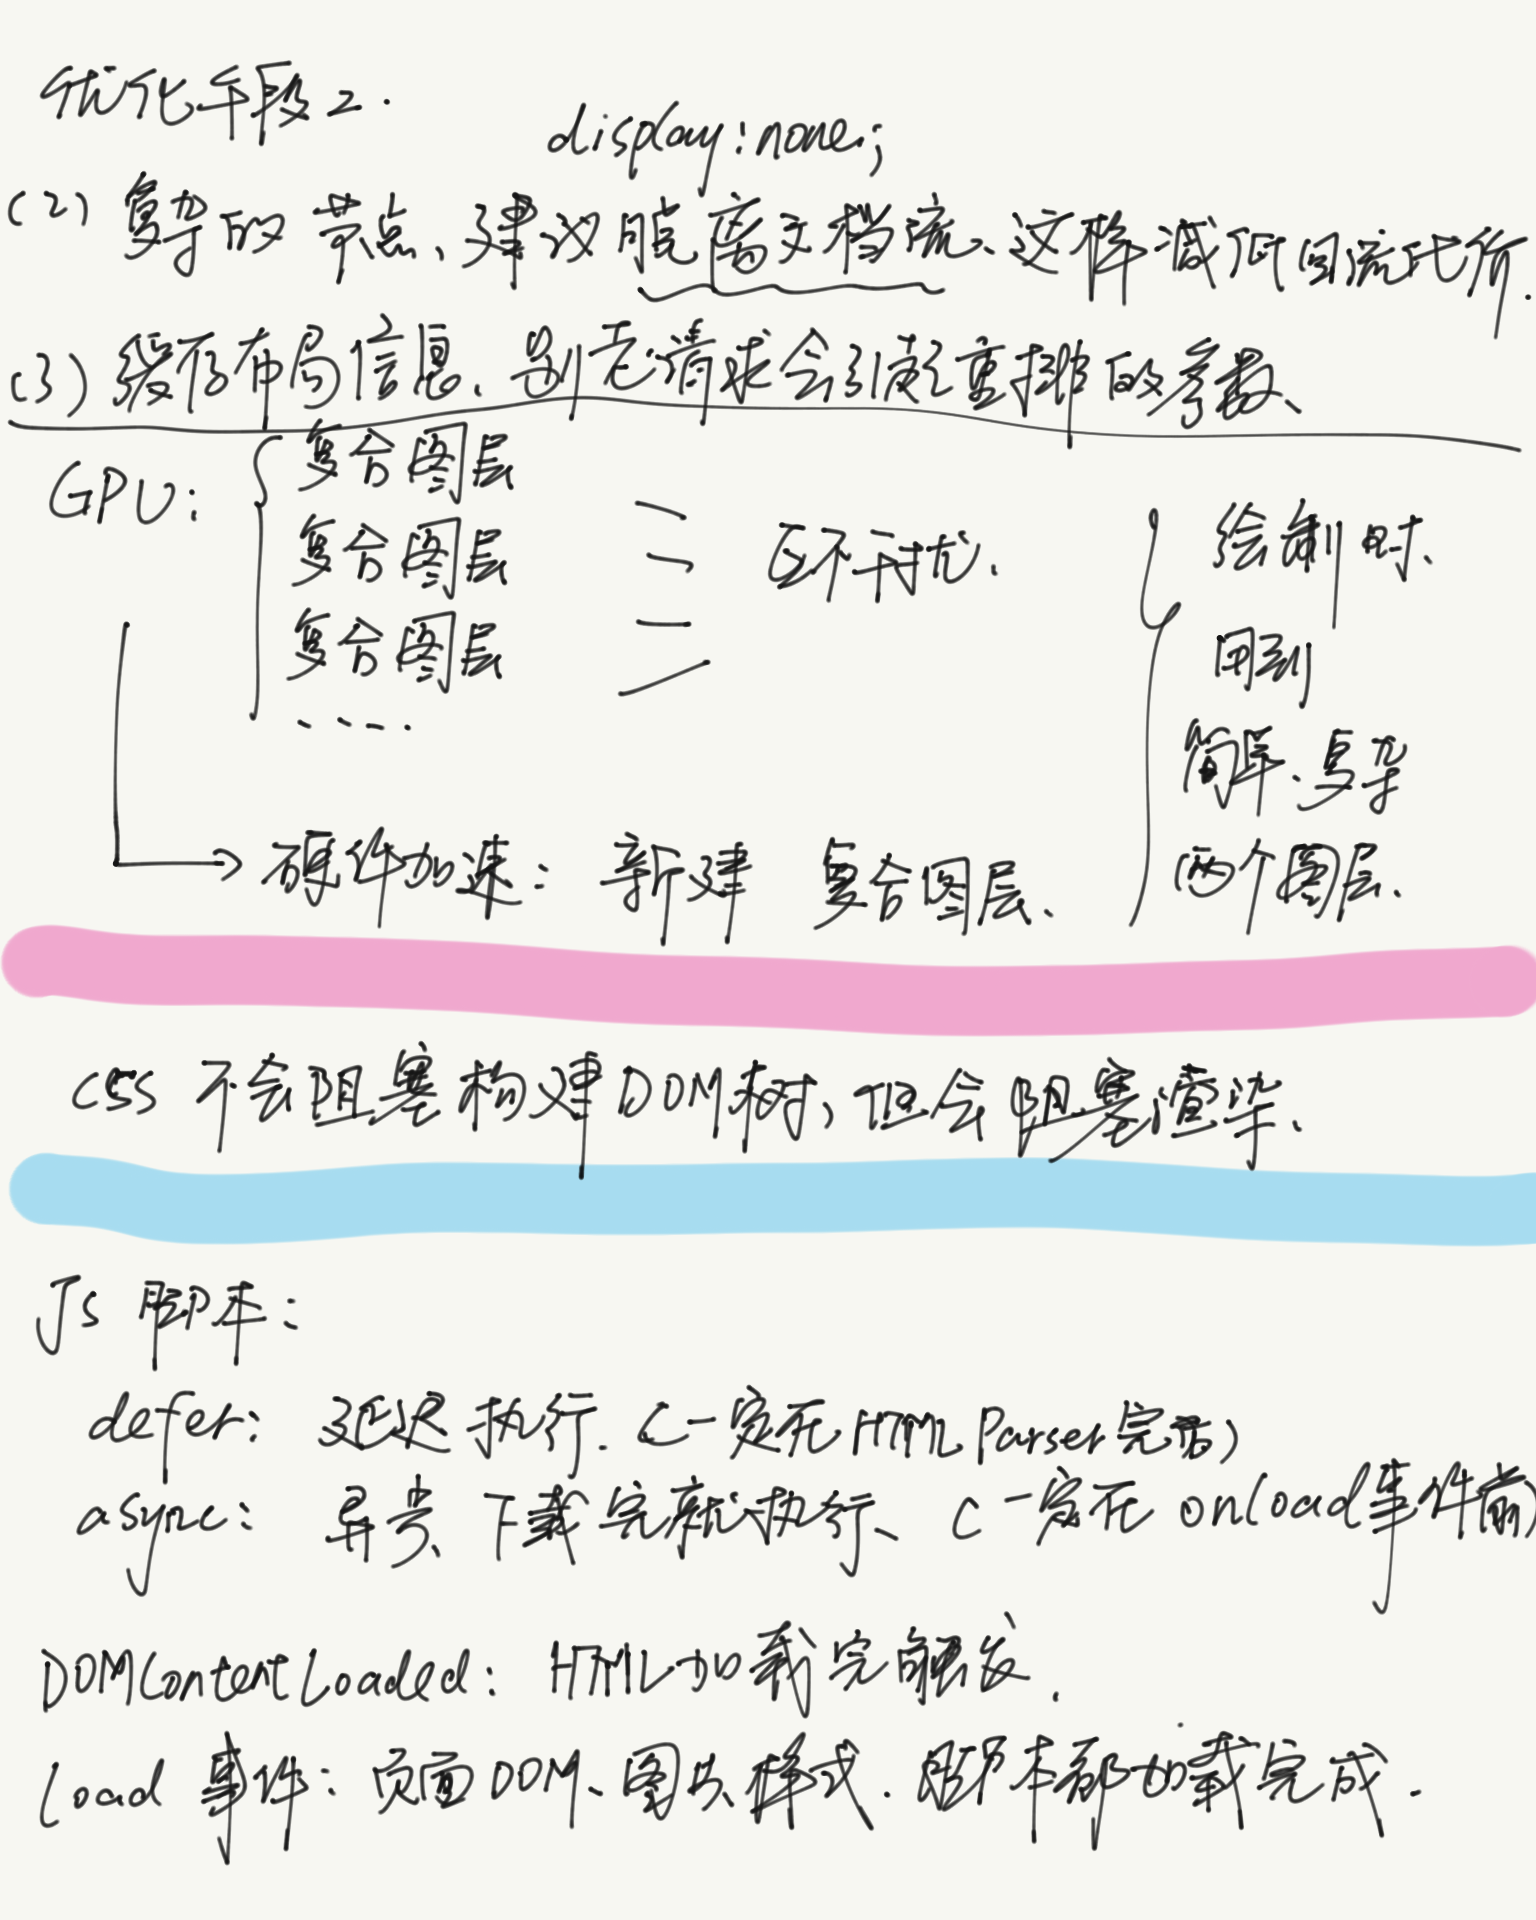 优化手段2.
display:none;
(2) 复杂的节点、建议脱离文档流、这样减低回流代价.
(3) 缓存布局信息. 别无请求会引起重排的参数、
GPU: 复合图层
复合图层
复合图层
....
互不干扰.
绘制时、
用到
简单、复杂
两个图层.
硬件加速: 新建 复合图层、
CSS 不会阻塞构建DOM树, 但会阻塞渲染.
Js 脚本:
defer: 延迟执行. (一定在HTML Parser完后)
async: 异步、下载完就执行、(一定在onload事件前)
DOMContentLoaded: HTML加载完触发.
load 事件: 页面DOM、图片、样式. 脚本都加载完成.